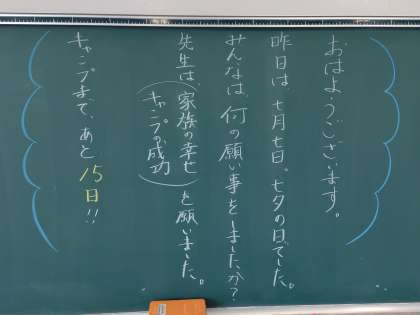 おはようございます。
昨日は、七月七日。七夕の日でした。
みんなは何の願い事をしましたか?
先生は、(家族の幸せ
キャンプの成功)を願いました。
キャンプまで、あと15日!!